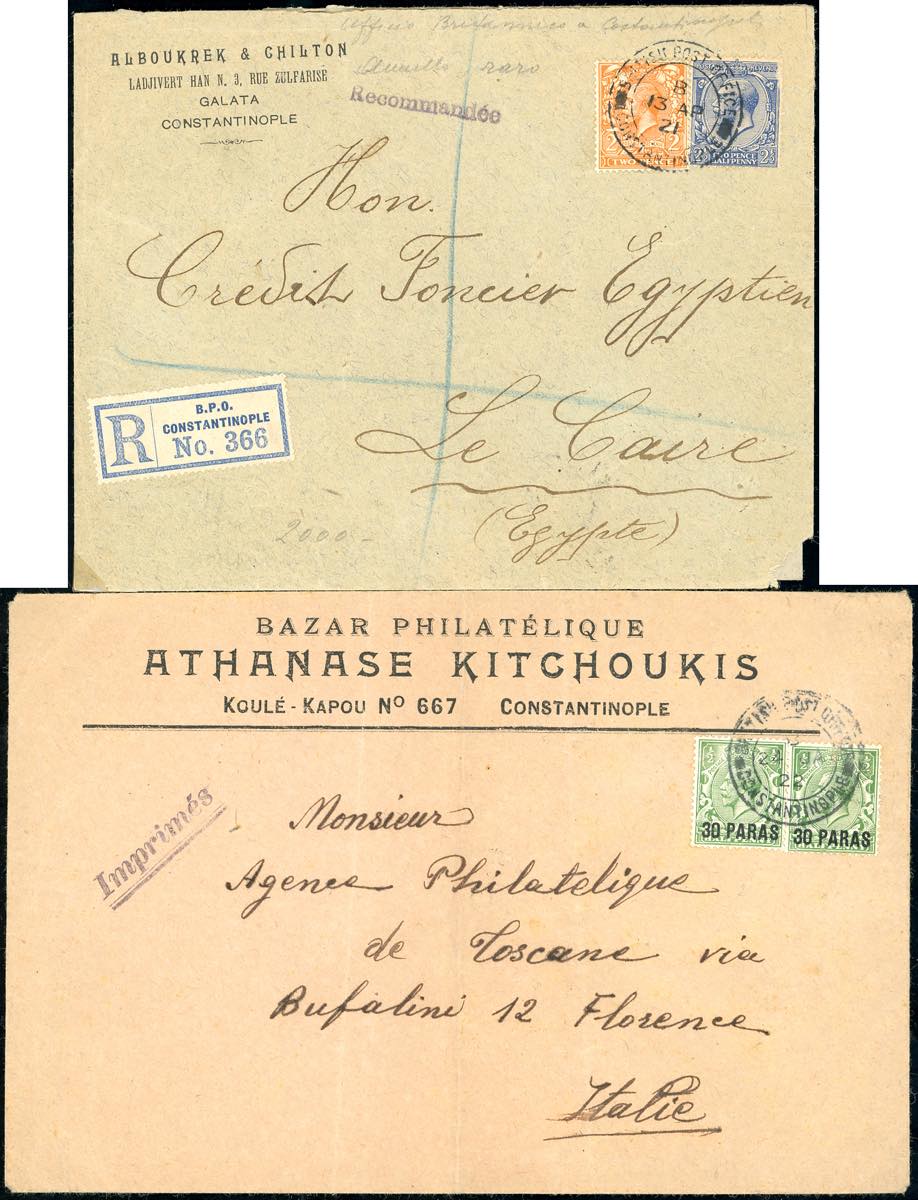 Ufficio Britannico a Costantinopoli
Annullo raro
ALBOUKREK & CHILTON
LADJIVERT HAN N. 3, RUE ZULFARISE
GALATA
CONSTANTINOPLE
Recommandée
BRITISH POST OFFICE
B
13 AP
21
CONSTANTINOPLE
2 2
TWO PENCE
2½ 2½
TWO PENCE
HALFPENNY
Hon.
Crédit Foncier Egyptien
Le Caire
(Egypte)
R
B.P.O.
CONSTANTINOPLE
No. 366
2000-
BAZAR PHILATÉLIQUE
ATHANASE KITCHOUKIS
KOULÉ-KAPOU Nº 667 CONSTANTINOPLE
BRITISH POST OFFICE
22
CONSTANTINOPLE
½ ½ ½ ½
30 PARAS 30 PARAS
Imprimés
Monsieur
Agence Philatelique
de Toscane via
Bufalini 12 Florence
Italie